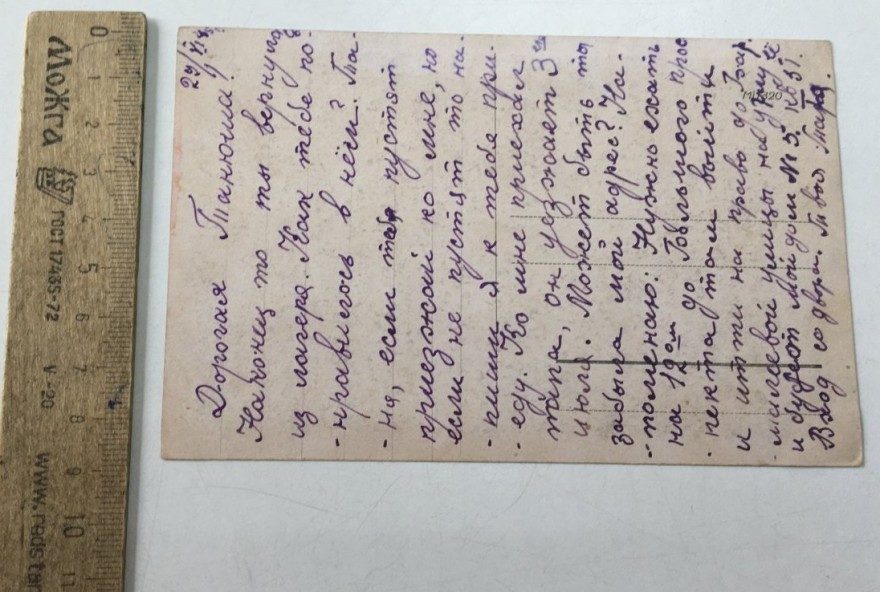 Можга
ГОСТ 17435-72
V - 20
www.redstar
0
1
2
3
4
5
6
7
8
9
10
11
29/VI
Дорогая Танюша!
Наконец то ты вернула
из лагеря. Как тебе по-
-нравилось в нём? Та-
-ня, если тебя пустят
приезжай ко мне, но
если не пустят то на-
-пиши я к тебе при-
-еду. Ко мне приехал
папа, он уезжает 3го
июля. Может быть ты
забыла мой адрес? На-
-поменаю: Нужно ехать
на 12ом до Большого прос
-пекта там выйти
и итти на право до
улицы на углу её
и будет мой дом № 5. кв 51.
Вход со двора. Твоя